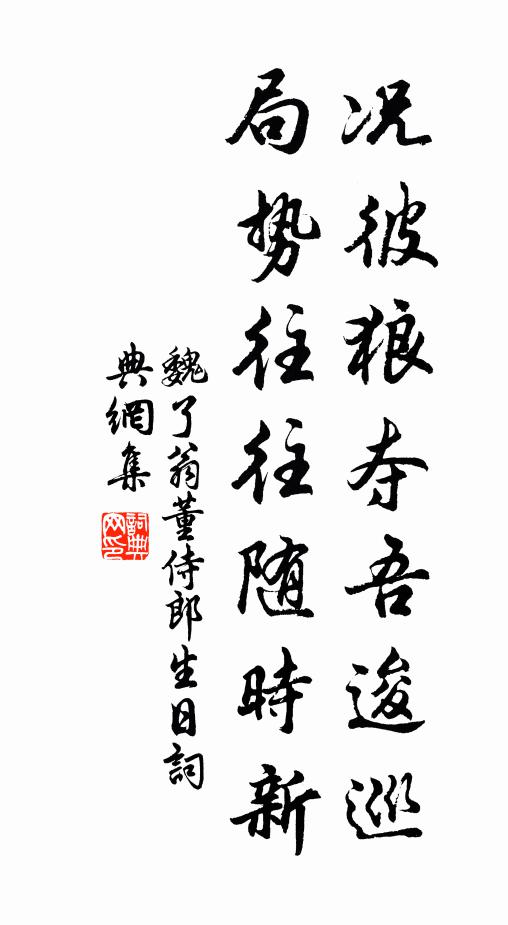 况彼狼夺吾逡巡
局势往往随時新
魏了翁董侍郎生日詞
典網集
詞典网印